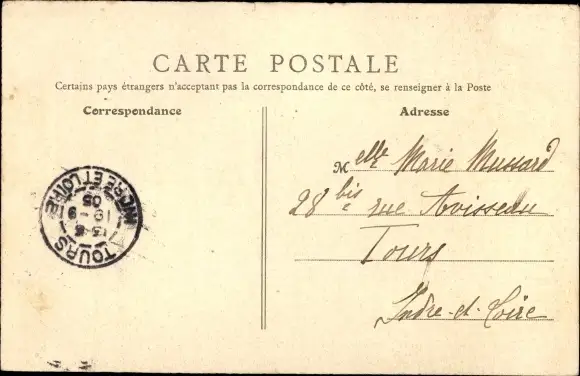 CARTE POSTALE
Certains pays étrangers n'acceptant pas la correspondance de ce côté, se renseigner à la Poste
Correspondance
Adresse
Melle Marie Mussard
28 bis rue Avisseau
Tours
Indre-et-Loire
TOURS
19-9
05
INDRE ET LOIRE